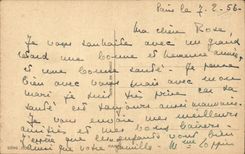 Paris le 7-2-56-
Ma chère Rose
Je vous souhaite avec un grand
retard une bonne et heureuse année,
et une bonne santé. Je pense
bien avec vous mais avec mon
mari je suis prise car sa
santé est toujours aussi mauvaise.
Je vous envoie mes meilleurs
amitiés et mes bons baisers
J'espère que les enfants vont bien
ainsi que votre famille. M